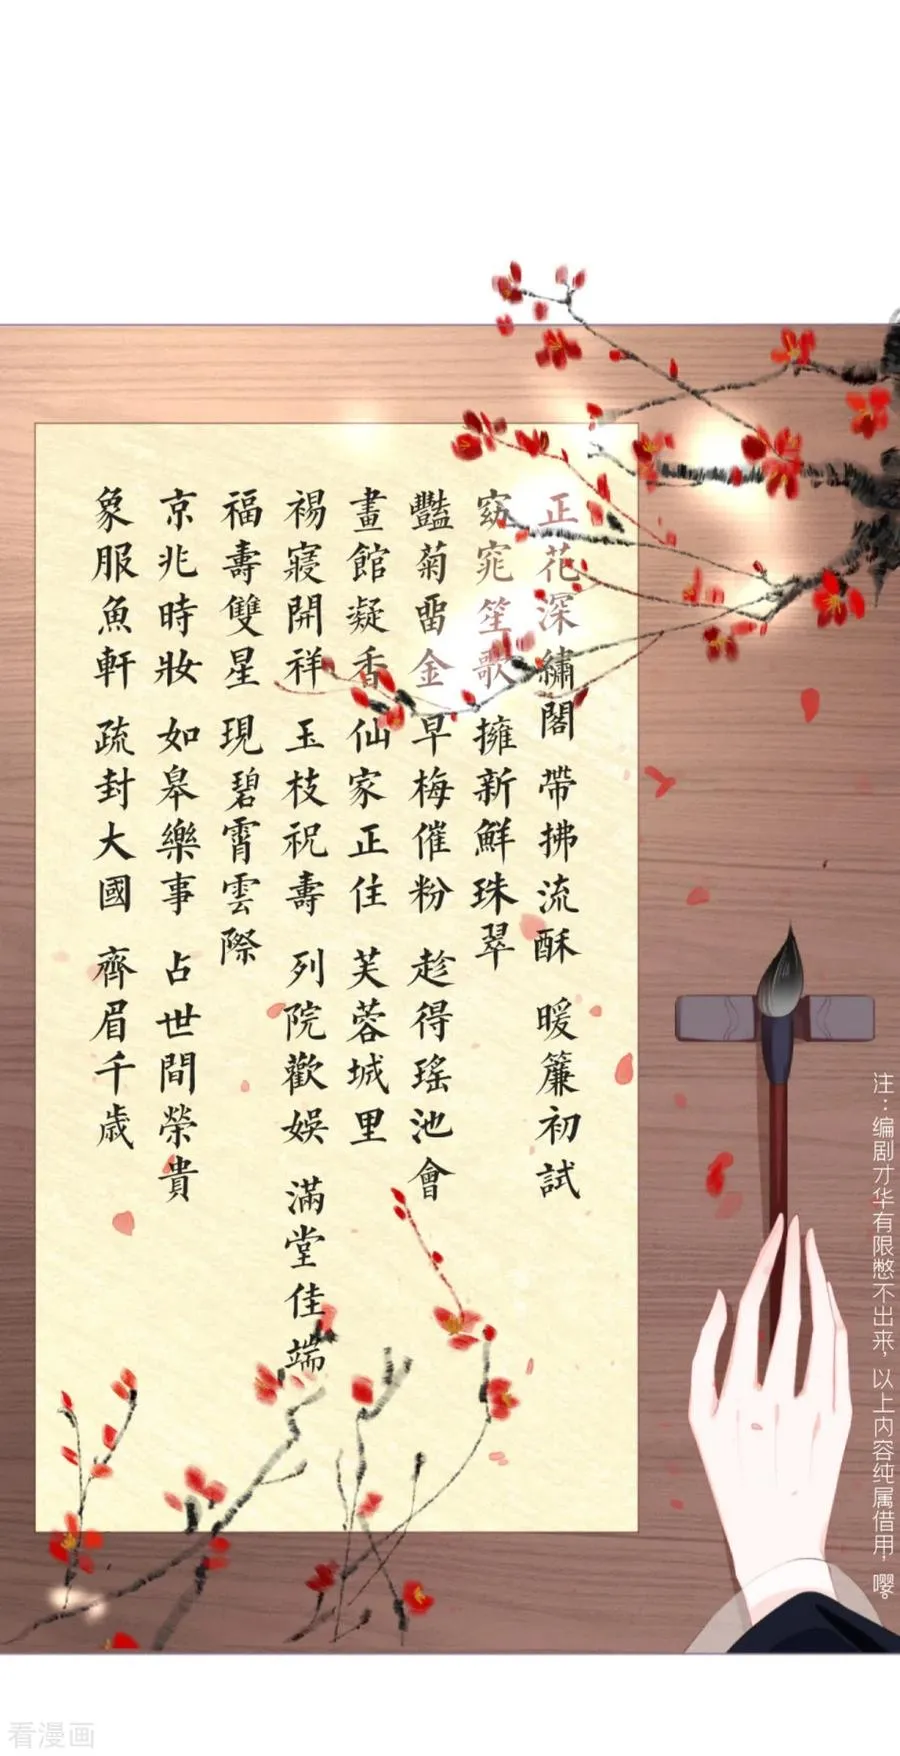 正花深繡閣 帶拂流酥 暖簾初試
窈窕笙歌 擁新鮮珠翠
豔菊畱金 早梅催粉 趁得瑤池會
畫館凝香 仙家正住 芙蓉城里
裼寢開祥 玉枝祝壽 列院歡娛 滿堂佳端
福壽雙星 現碧霄雲際
京兆時妝 如皋樂事 占世間榮貴
象服魚軒 疏封大國 齊眉千歳
注：编剧才华有限憋不出来，以上内容纯属借用，嘤。
看漫画